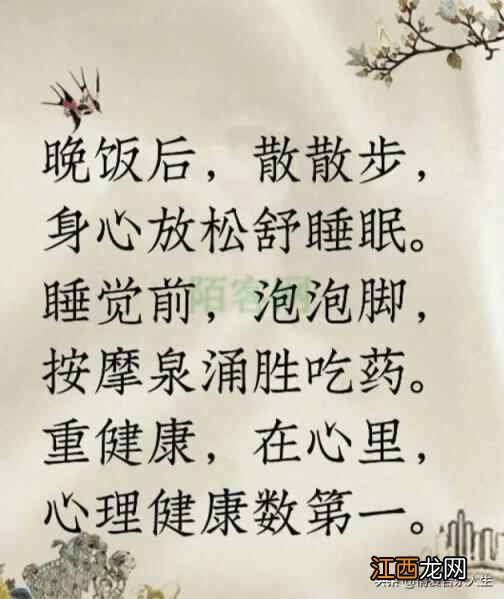 晚饭后，散散步，
身心放松舒睡眠。
陌客网
睡觉前，泡泡脚，
按摩泉涌胜吃药。
重健康，在心里，
心理健康数第一。
江西龙网